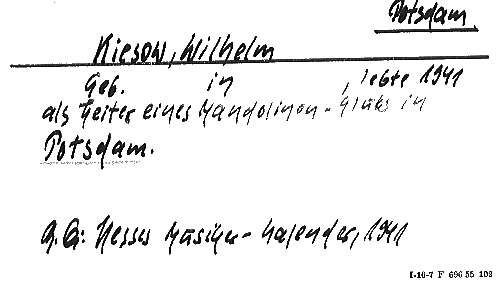 Potsdam
Kiesow, Wilhelm
Geb. in , lebte 1941
als Leiter eines Mandolinen-Clubs in
Potsdam.
Q.: Hesses Musiker-Kalender, 1941
I-16-7 F 696 55 102